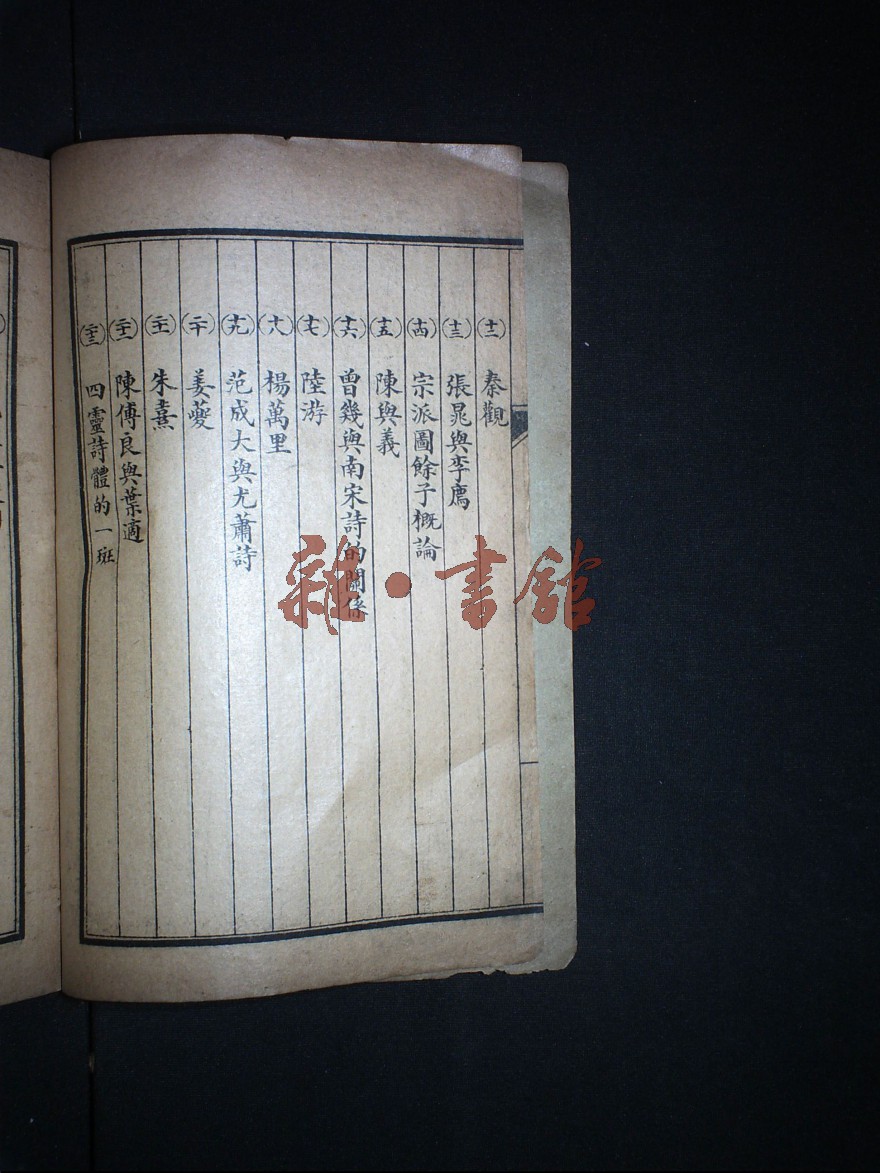 (十二) 秦觀
(十三) 張晁與李廌
(十四) 宗派圖餘子概論
(十五) 陳與義
(十六) 曾幾與南宋詩的關係
(十七) 陸游
(十八) 楊萬里
(十九) 范成大與尤蕭詩
(二十) 姜夔
(二十一) 朱熹
(二十二) 陳傅良與葉適
(二十三) 四靈詩體的一斑
雜·書館